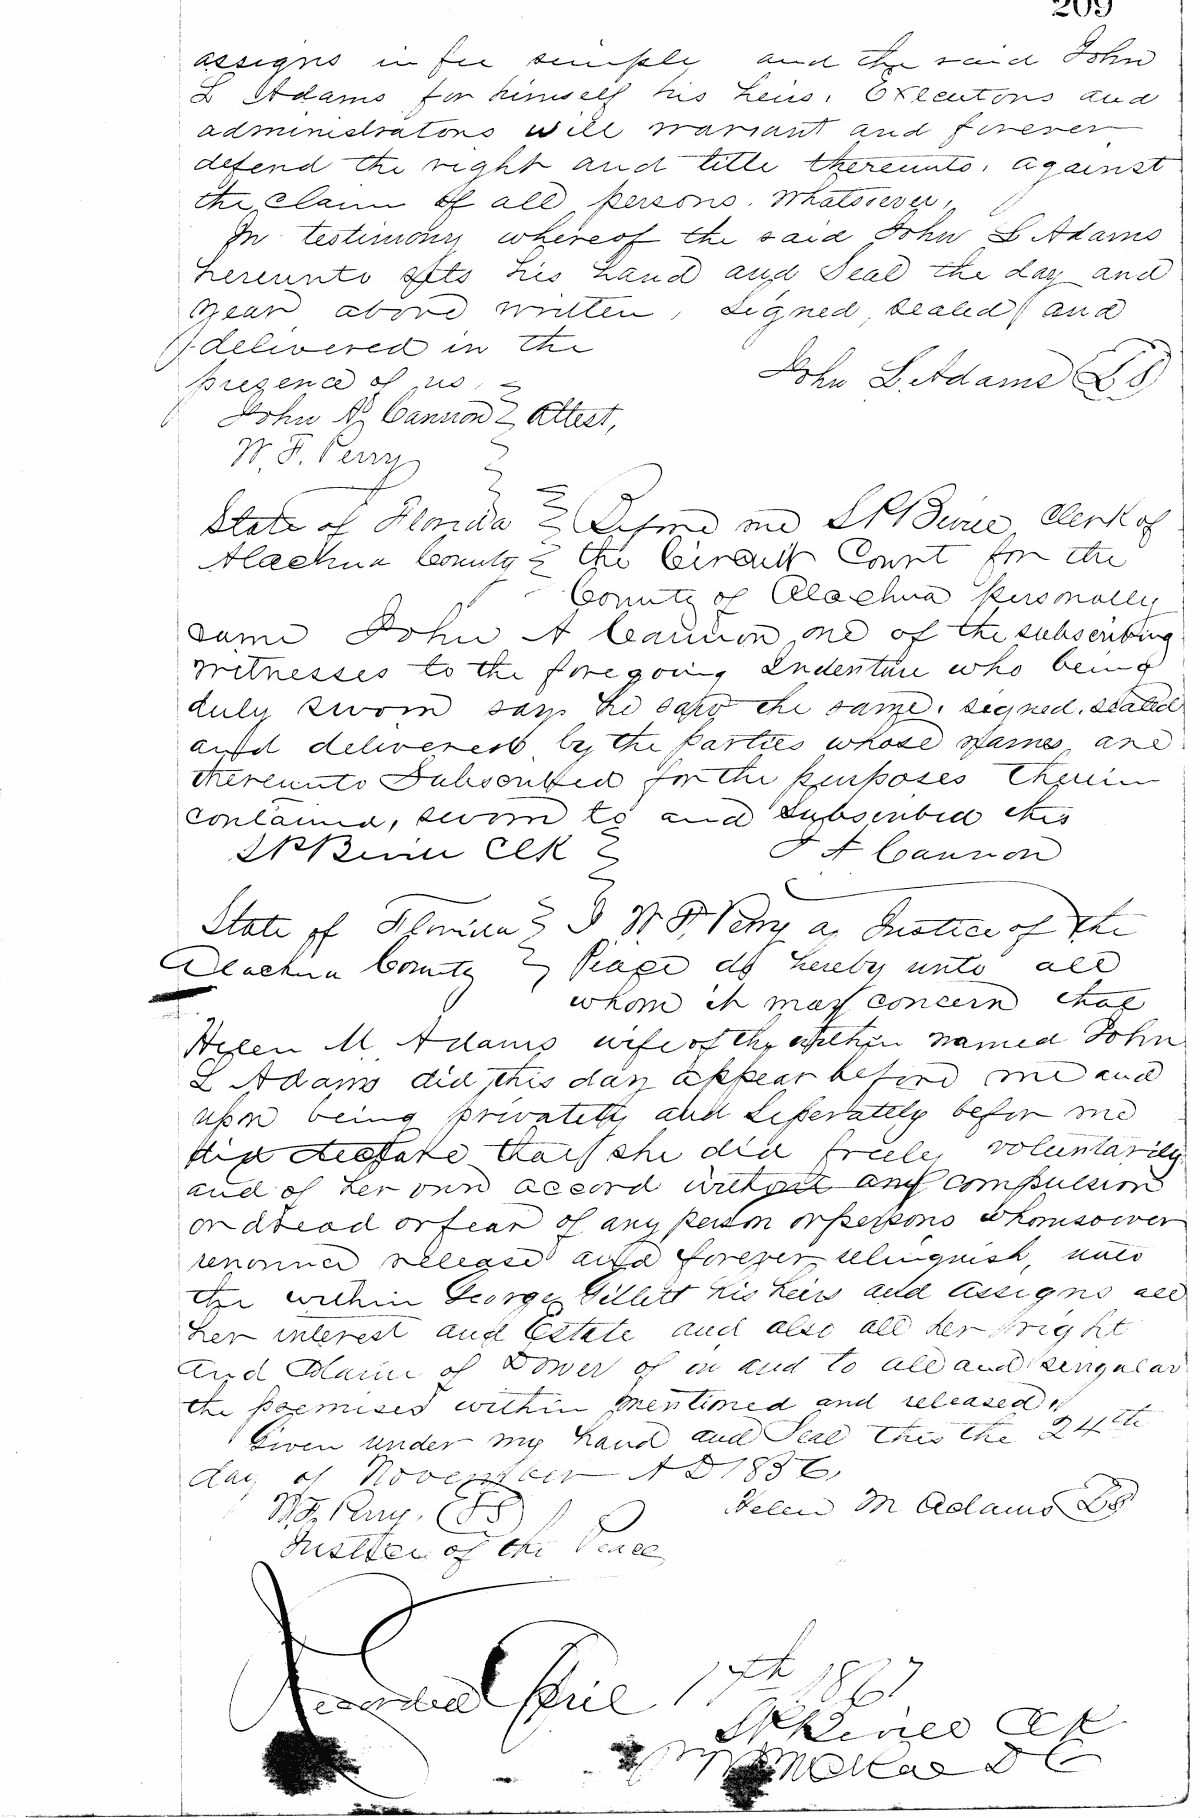 209
assigns in fee simple and the said John
L Adams for himself his heirs, Executors and
administrators will warrant and forever
defend the right and title thereunto, against
the claim of all persons. whatsoever,
In testimony whereof the said John L Adams
hereunto sets his hand and Seal the day and
year above written, Signed, sealed and
delivered in the
presence of us,
John L. Adams LS
John A. Cannon Attest,
W. F. Perry
State of Florida Before me Clerk of
Alachua County the Circuit Court for the
County of Alachua personally
came John A Cannon one of the subscribing
witnesses to the foregoing Indenture who being
duly sworn says he saw the same, signed, sealed
and delivered by the parties whose names are
thereunto Subscribed for the purposes therein
contained, sworn to and Subscribed this
Clk J A Cannon
State of Florida I W. F. Perry a Justice of the
Alachua County Peace do hereby unto all
whom it may concern that
Helen M Adams wife of the within named John
L Adams did this day appear before me and
upon being privately and Seperately before me
did declare that she did freely voluntarily
and of her own accord without any compulsion
or dread or fear of any person or persons whomsoever
renounce release and forever relinquish, unto
the within George Gillett his heirs and assigns all
her interest and Estate and also all her right
and Claim of Dower of in and to all and singular
the premises within mentioned and released,
Given under my hand and Seal this the 24th
day of November AD 1856,
W. F. Perry, LS Helen M Adams LS
Justice of the Peace
Recorded April 17th 1867
Clk
DC